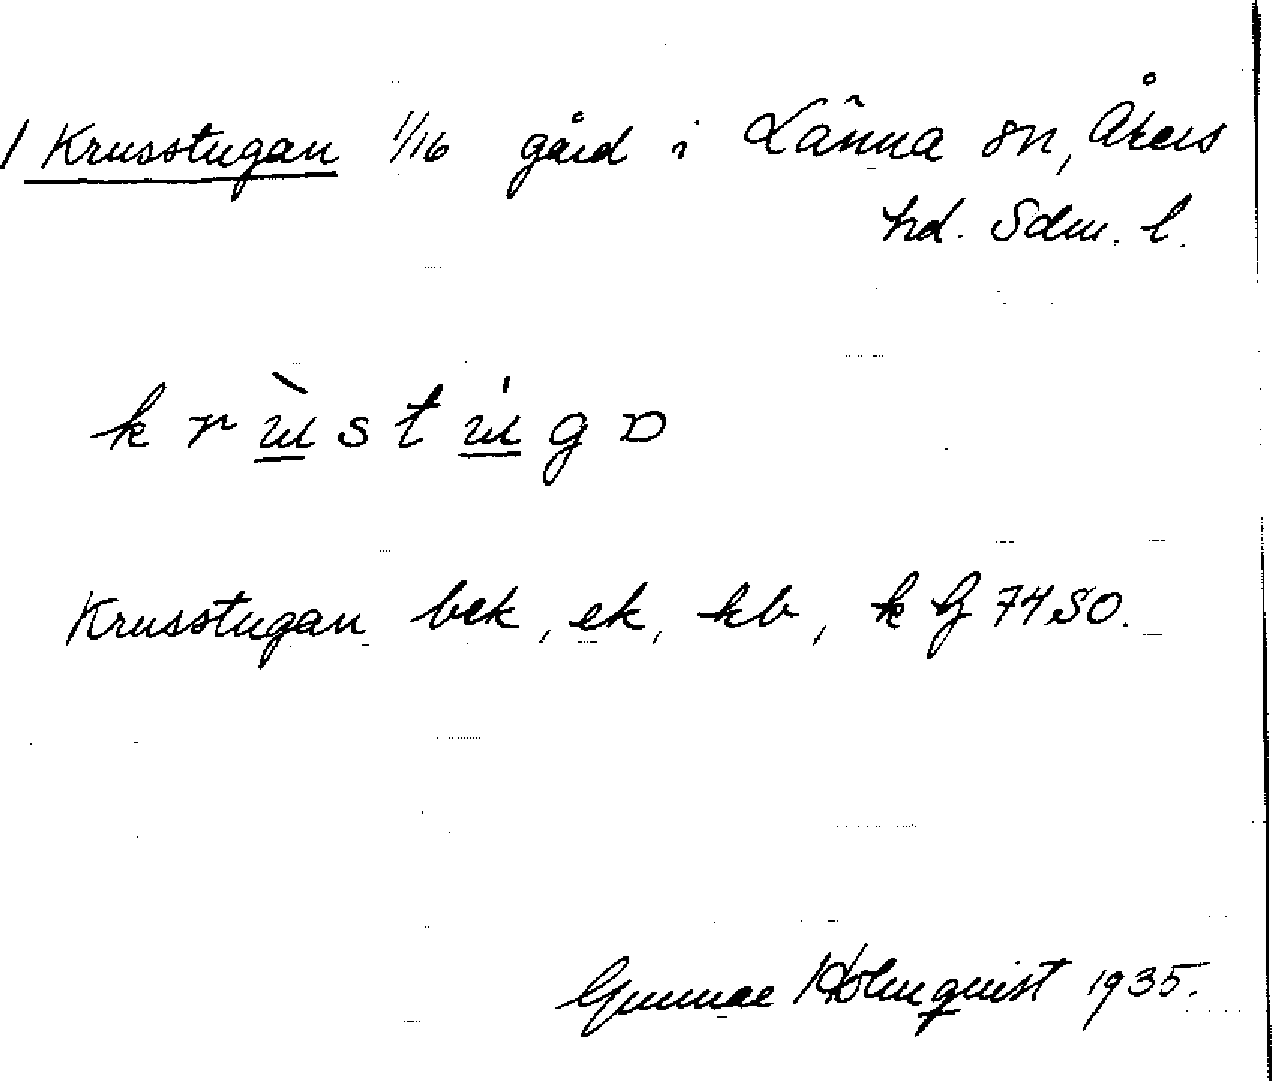 / Krusstugan 1/16 gård i Länna sn, Åkers
hd. Sdm. l.
k r ù s t ú g ɒ
Krusstugan bek, ek, kb, k bf 74 SO.
Gunnar Holmquist 1935.